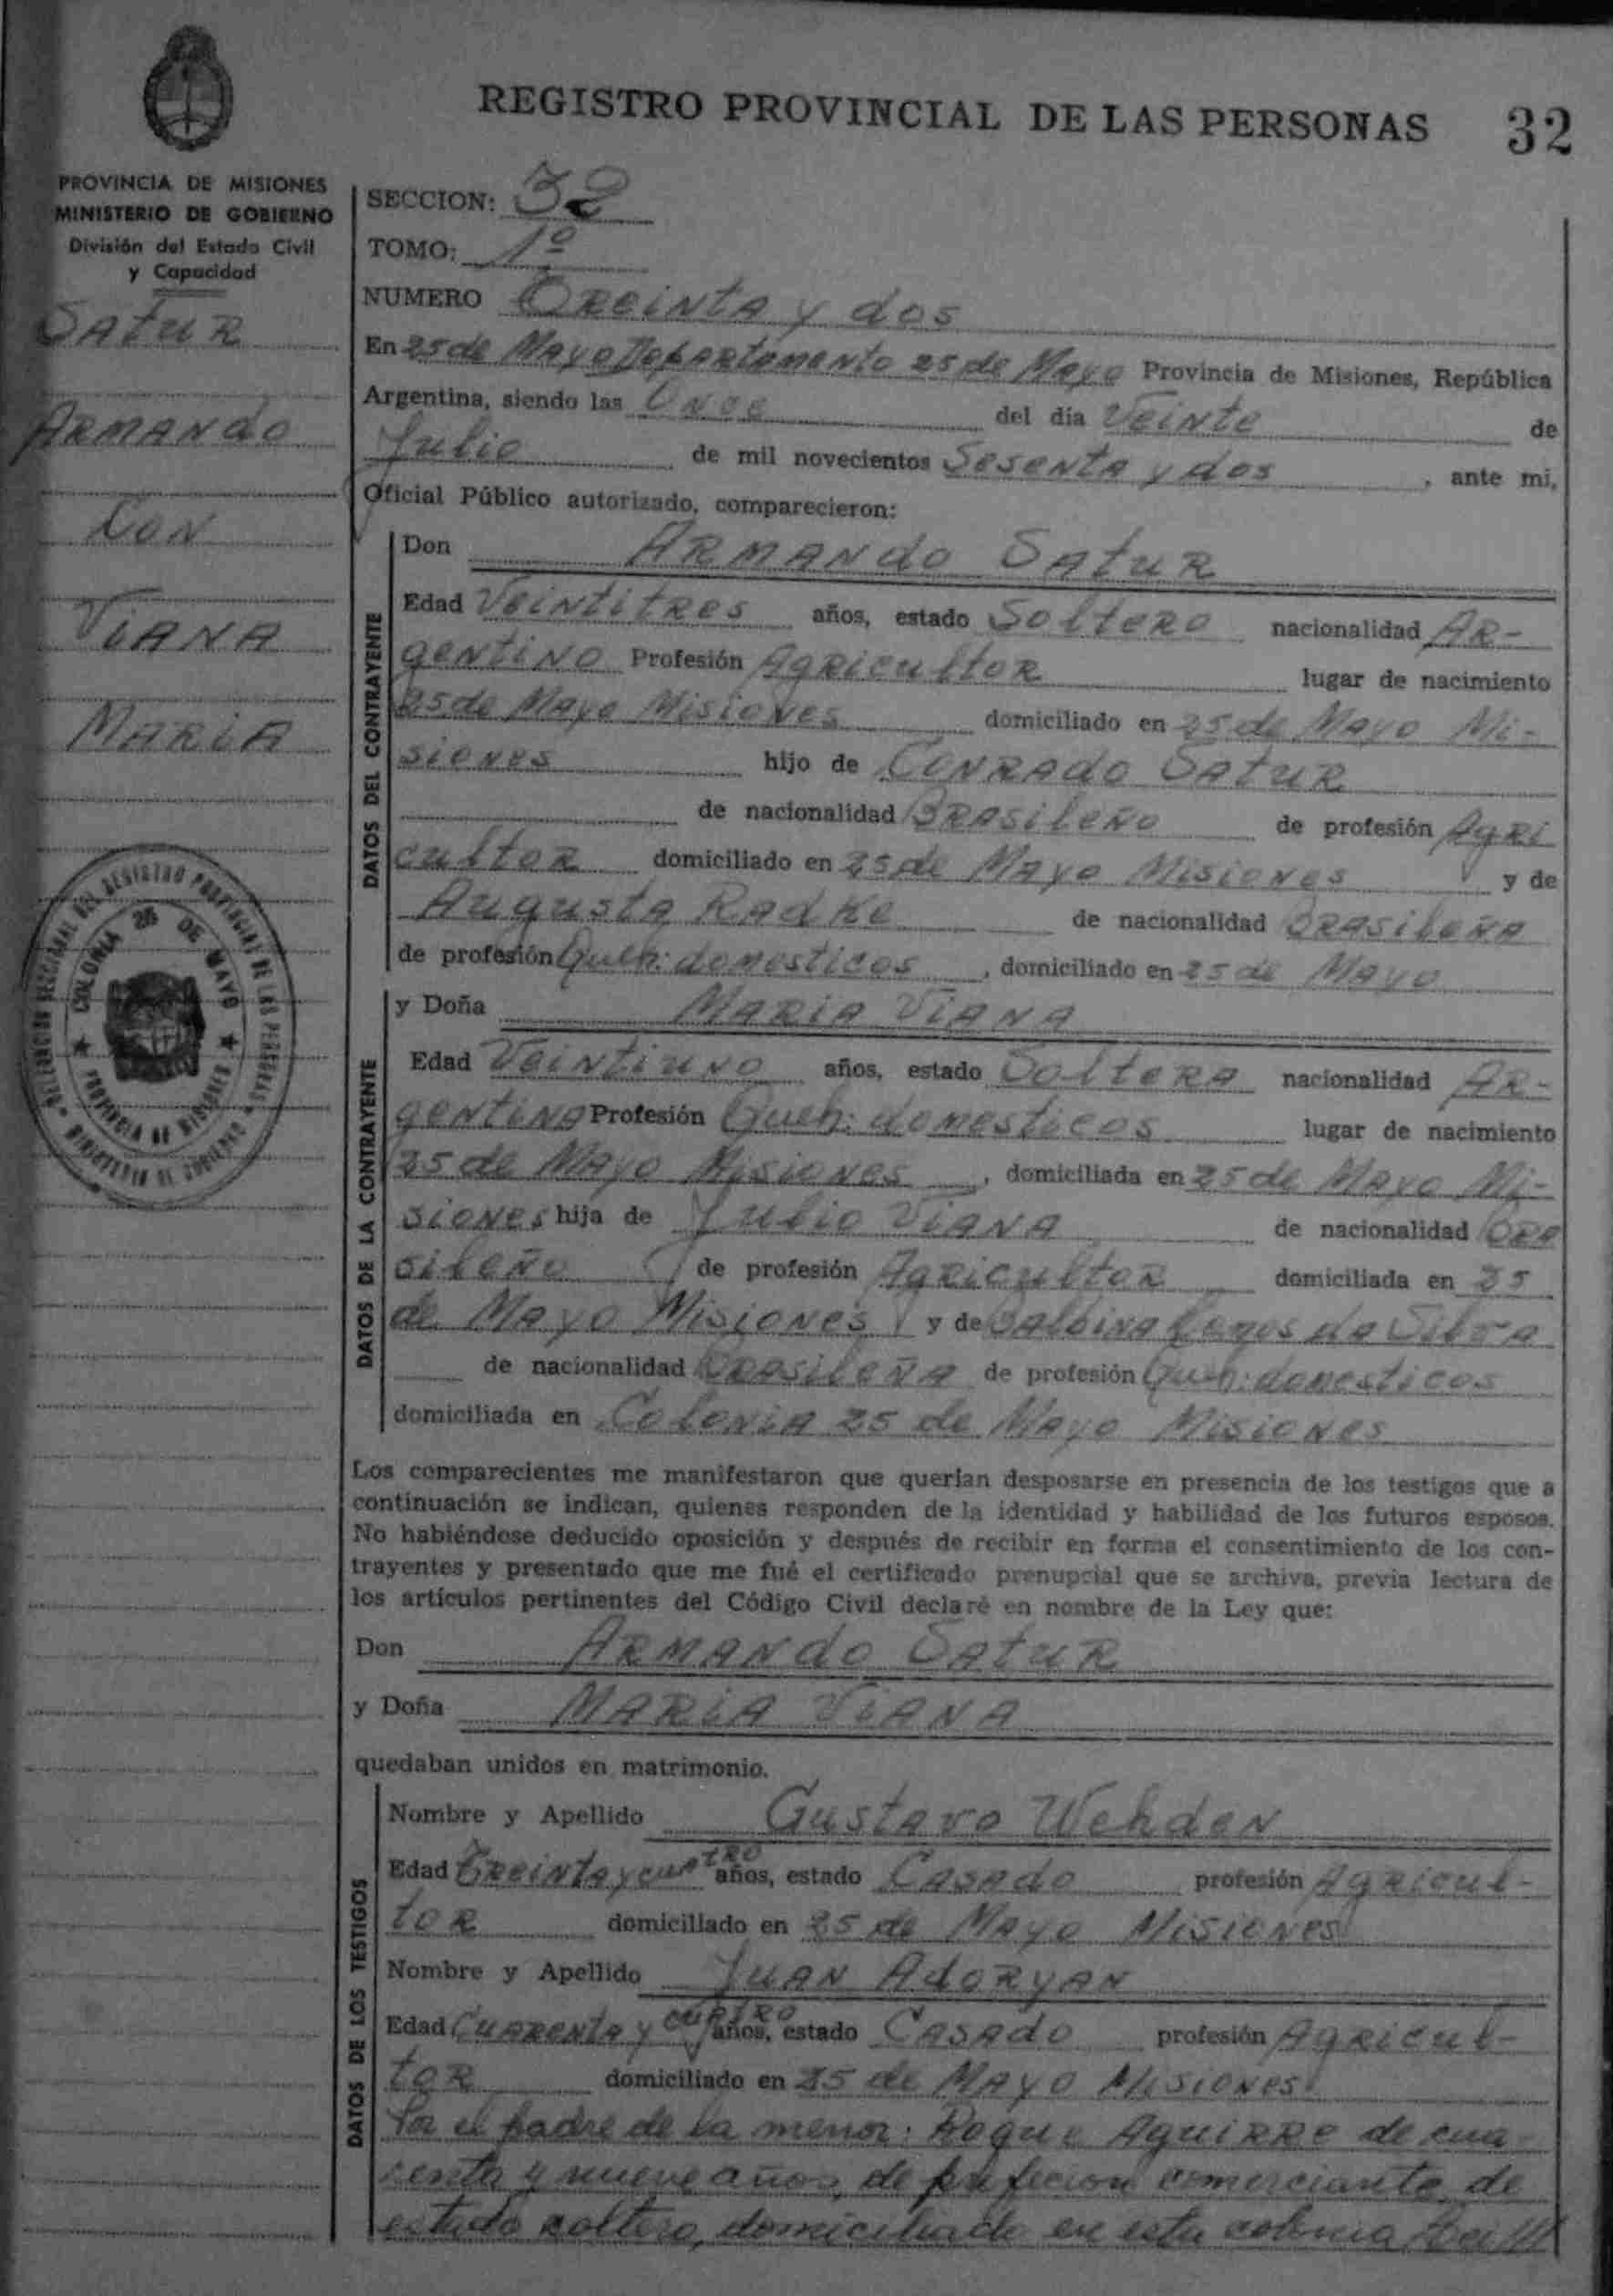 REGISTRO PROVINCIAL DE LAS PERSONAS 32
PROVINCIA DE MISIONES
MINISTERIO DE GOBIERNO
División del Estado Civil
y Capacidad
SATUR
ARMANDO
CON
VIANA
MARIA
COLONIA 25 DE MAYO
PROVINCIA DE MISIONES
SECCION: 32
TOMO: 1º
NUMERO Treinta y dos
En 25 de Mayo Departamento 25 de Mayo Provincia de Misiones, República
Argentina, siendo las Once del día Veinte de
Julio de mil novecientos Sesenta y dos, ante mi,
Oficial Público autorizado, comparecieron:
DATOS DEL CONTRAYENTE
Don Armando Satur
Edad Veintitres años, estado Soltero nacionalidad Ar-
gentino Profesión Agricultor lugar de nacimiento
25 de Mayo Misiones domiciliado en 25 de Mayo Mi-
siones hijo de Conrado Satur
de nacionalidad Brasileño de profesión Agri
cultor domiciliado en 25 de Mayo Misiones y de
Augusta Radke de nacionalidad Brasileña
de profesión Queh: domesticos, domiciliado en 25 de Mayo
DATOS DE LA CONTRAYENTE
y Doña Maria Viana
Edad Veintiuno años, estado Soltera nacionalidad Ar-
gentina Profesión Queh: domesticos lugar de nacimiento
25 de Mayo Misiones, domiciliada en 25 de Mayo Mi-
siones hija de Julio Viana de nacionalidad Bra
sileño de profesión Agricultor domiciliada en 25
de Mayo Misiones y de Balbina da Silva
de nacionalidad Brasileña de profesión Queh: domesticos
domiciliada en Colonia 25 de Mayo Misiones
Los comparecientes me manifestaron que querían desposarse en presencia de los testigos que a
continuación se indican, quienes responden de la identidad y habilidad de los futuros esposos.
No habiéndose deducido oposición y después de recibir en forma el consentimiento de los con-
trayentes y presentado que me fué el certificado prenupcial que se archiva, previa lectura de
los artículos pertinentes del Código Civil declaré en nombre de la Ley que:
Don Armando Satur
y Doña Maria Viana
quedaban unidos en matrimonio.
DATOS DE LOS TESTIGOS
Nombre y Apellido Gustavo Wehden
Edad Treinta y cuatro años, estado Casado profesión Agricul-
tor domiciliado en 25 de Mayo Misiones
Nombre y Apellido Juan Adoryan
Edad Cuarenta y cuatro años, estado Casado profesión Agricul-
tor domiciliado en 25 de Mayo Misiones
Por el padre de la menor: Roque Aguirre de cua
renta y nueve años, de profecion comerciante, de
estado soltero, domiciliado en esta colonia